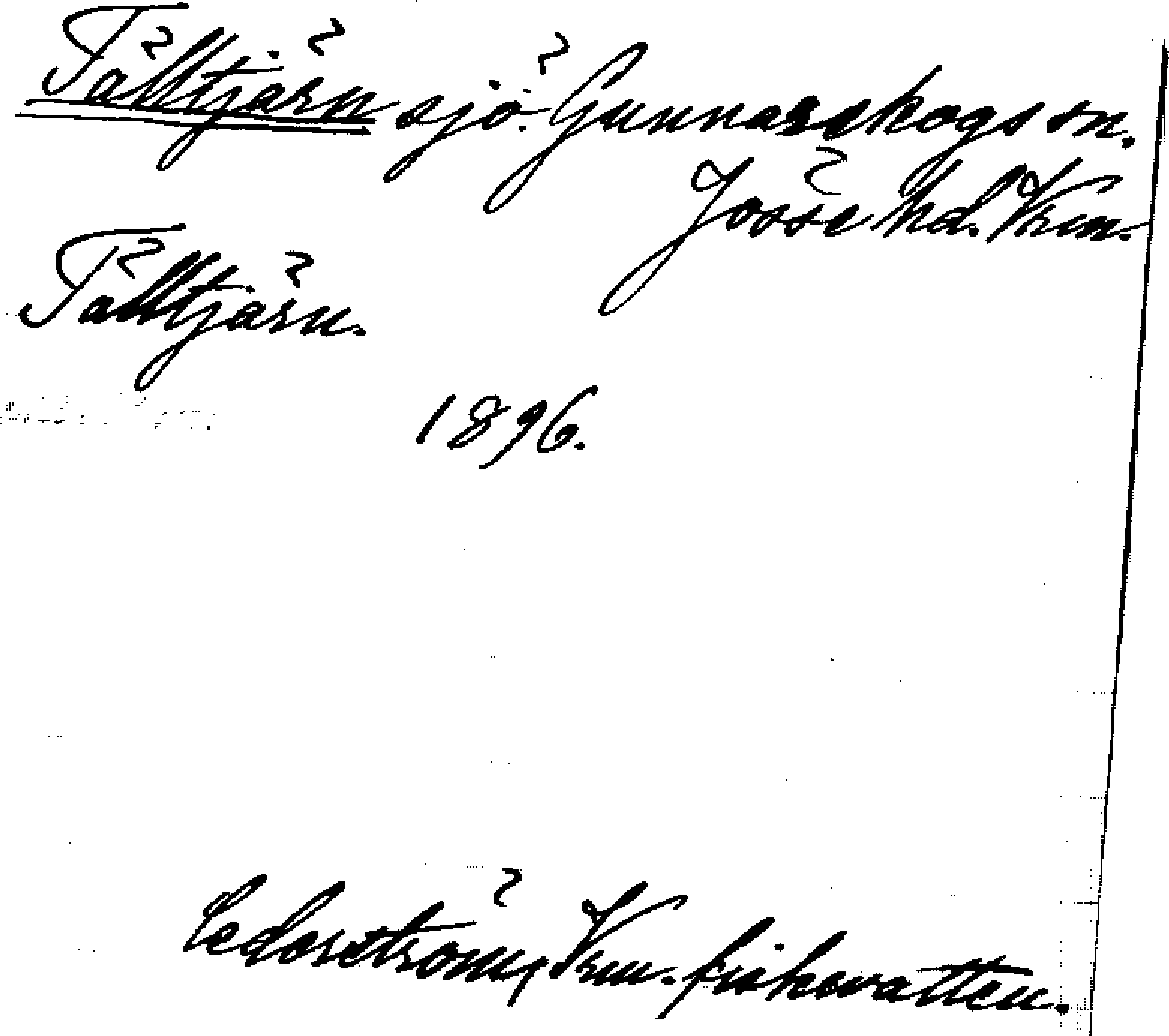 Tälltjärn sjö. Gunnarskogs sn.
Jösse hd. Vrm.
Tälltjärn.
1896.
Cederström, Vrm. fiskevatten.